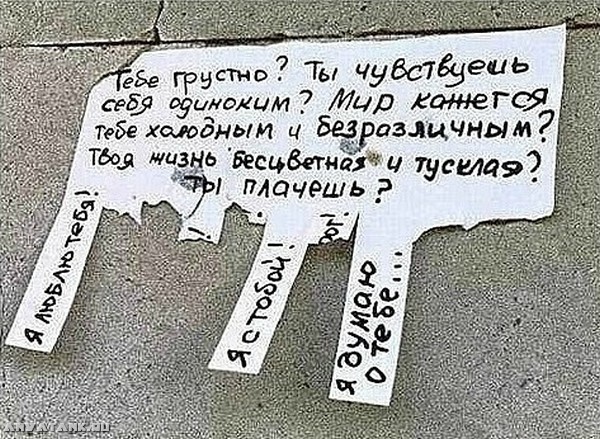 Тебе грустно? Ты чувствуешь
себя одиноким? Мир кажется
тебе холодным и безразличным?
Твоя жизнь бесцветная и тусклая?
Ты плачешь?
Я люблю тебя!
!
Я с тобой!
ой!
Я думаю
о тебе...